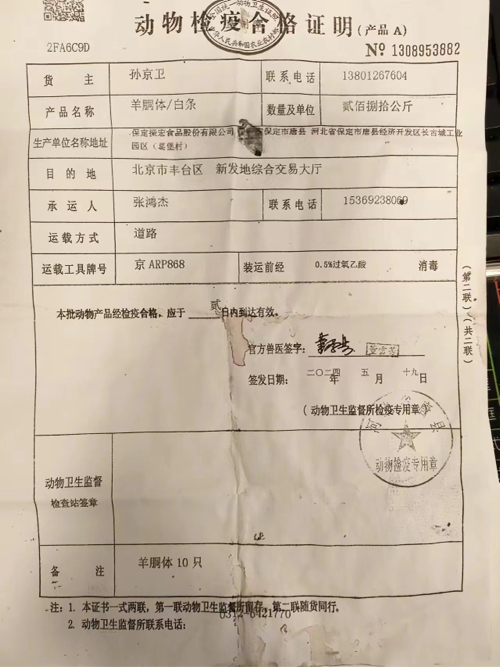 动物检疫合格证明(产品A)
2FA6C9D
№ 1308953882
货 主 孙京卫 联系电话 13801267604
产品名称 羊胴体/白条 数量及单位 贰佰捌拾公斤
生产单位名称地址 保定振宏食品股份有限公司 省保定市唐县 河北省保定市唐县经济开发区长古城工业
园区(葛堡村)
目 的 地 北京市丰台区 新发地综合交易大厅
承 运 人 张鸿杰 联系电话 15369238069
运载方式 道路
运载工具牌号 京 ARP868 装运前经 0.5%过氧乙酸 消毒
本批动物产品经检疫合格。应于 贰 日内到达有效。
官方兽医签字:
签发日期: 二〇二四 年 五 月 十九 日
(动物卫生监督所检疫专用章)
动物检疫专用章
动物卫生监督
检查站签章
备 注 羊胴体10只
注:1. 本证书一式两联,第一联动物卫生监督所留存,第二联随货同行。
2. 动物卫生监督所联系电话: 0312-6421770
(第二联)(共二联)